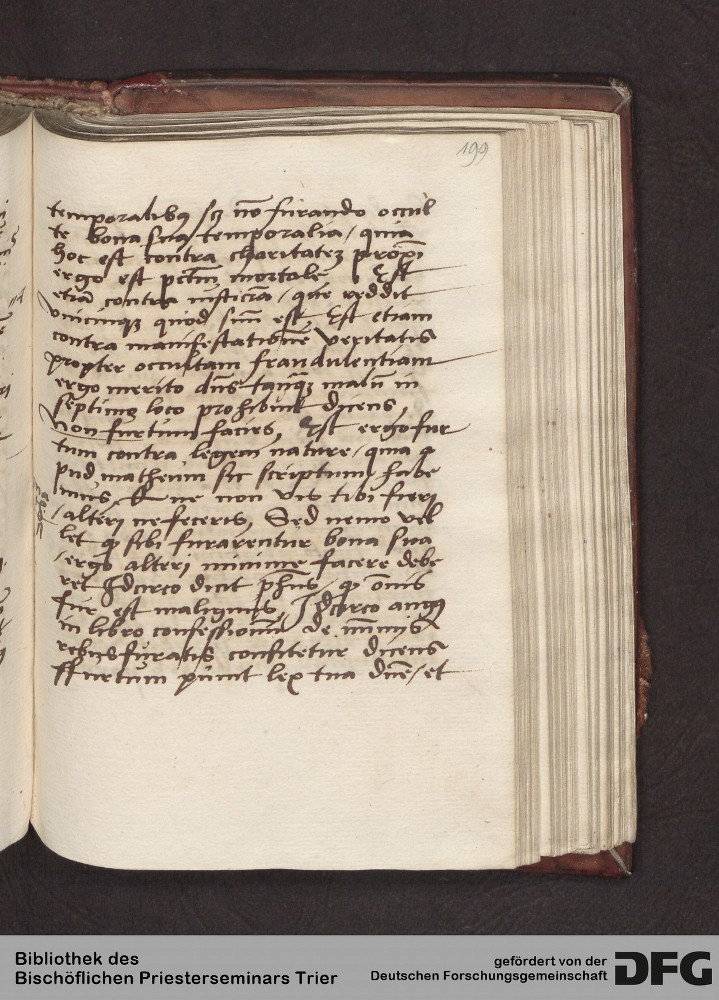 199
temporalibꝰ sꝫ nō furando occul
te bona sua temporalia / quia
hoc est contra charitatez proximi
ergo est pctm̄ mortale Est
etiā contra iusticiā / que reddit
vnicuiqꝫ quod suū est Est etiam
contra manifestationē veritatis
propter occultam fraudulentiam
ergo merito dn̄s tanqꝫ malū in
septimo loco prohibuit dicens
Non furtum facies, Est ergo fur
tum contra legem nature / quia a
pud matheum sic scriptum habe
mus, ne non vis tibi fieri
/ alteri ne feceris, Sed nemo vel
let ꝙ sibi furarentur bona sua
/ ergo alteri minime facere debe
ret Idcirco dicit ph̄us / ꝙ om̄is
fur est malignus, Idcirco augꝰ
in libro confessionū de
rebus furatis confitetur dicens
Ffurtum punit lex tua dn̄e / et
Bibliothek des
Bischöflichen Priesterseminars Trier
gefördert von der
Deutschen Forschungsgemeinschaft
DFG